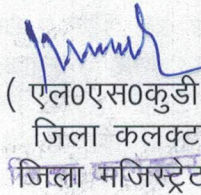 ( एल0एस0कुडी
जिला कलक्ट
जिला मजिस्ट्रेट